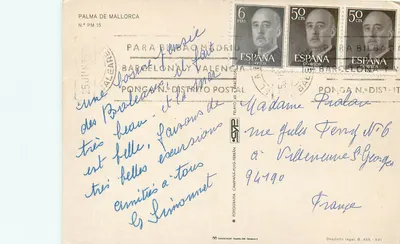 PALMA DE MALLORCA
N.º PM.15
6 PTAS
50 CTS
50 CTS
ESPAÑA
ESPAÑA
ESPAÑA
PARA BILBAO MADRID
BARCELONA VALENCIA
PONGA N. DISTRITO POSTAL
PARA BILBAO
BARCELONA
PONGA N. DISTRITO
une bonne pensée
des Baléares il fait
très beau. et la mer
est belle, faisons de
très belles excursions
amitiés à tous
Gs Simonnet
Madame
rue Jules Ferry Nº 6
à Villeneuve St Georges
94190
France